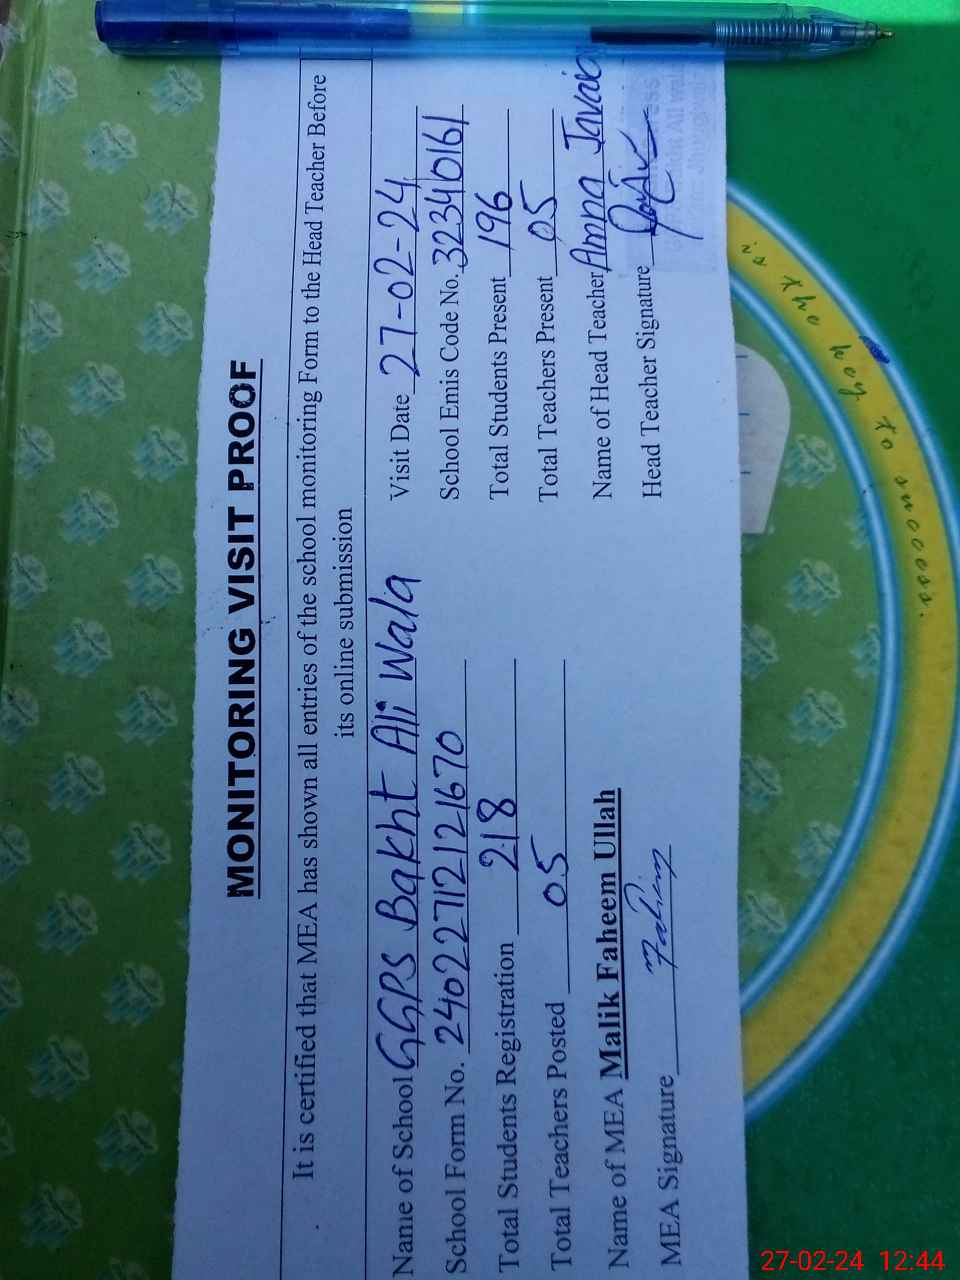 MONITORING VISIT PROOF
It is certified that MEA has shown all entries of the school monitoring Form to the Head Teacher Before
its online submission
Name of School GGPS Bakht Ali Wala Visit Date 27-02-24
School Form No. 24022712121670 School Emis Code No. 32340161
Total Students Registration 218 Total Students Present 196
Total Teachers Posted 05 Total Teachers Present 05
Name of MEA Malik Faheem Ullah Name of Head Teacher Amna Javaid
MEA Signature Fahim Head Teacher Signature
27-02-24 12:44